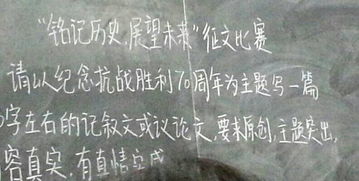 “铭记历史,展望未来”征文比赛
请以纪念抗战胜利70周年为主题写一篇
字左右的记叙文或议论文,要求原创,主题突出,
容真实,有真情